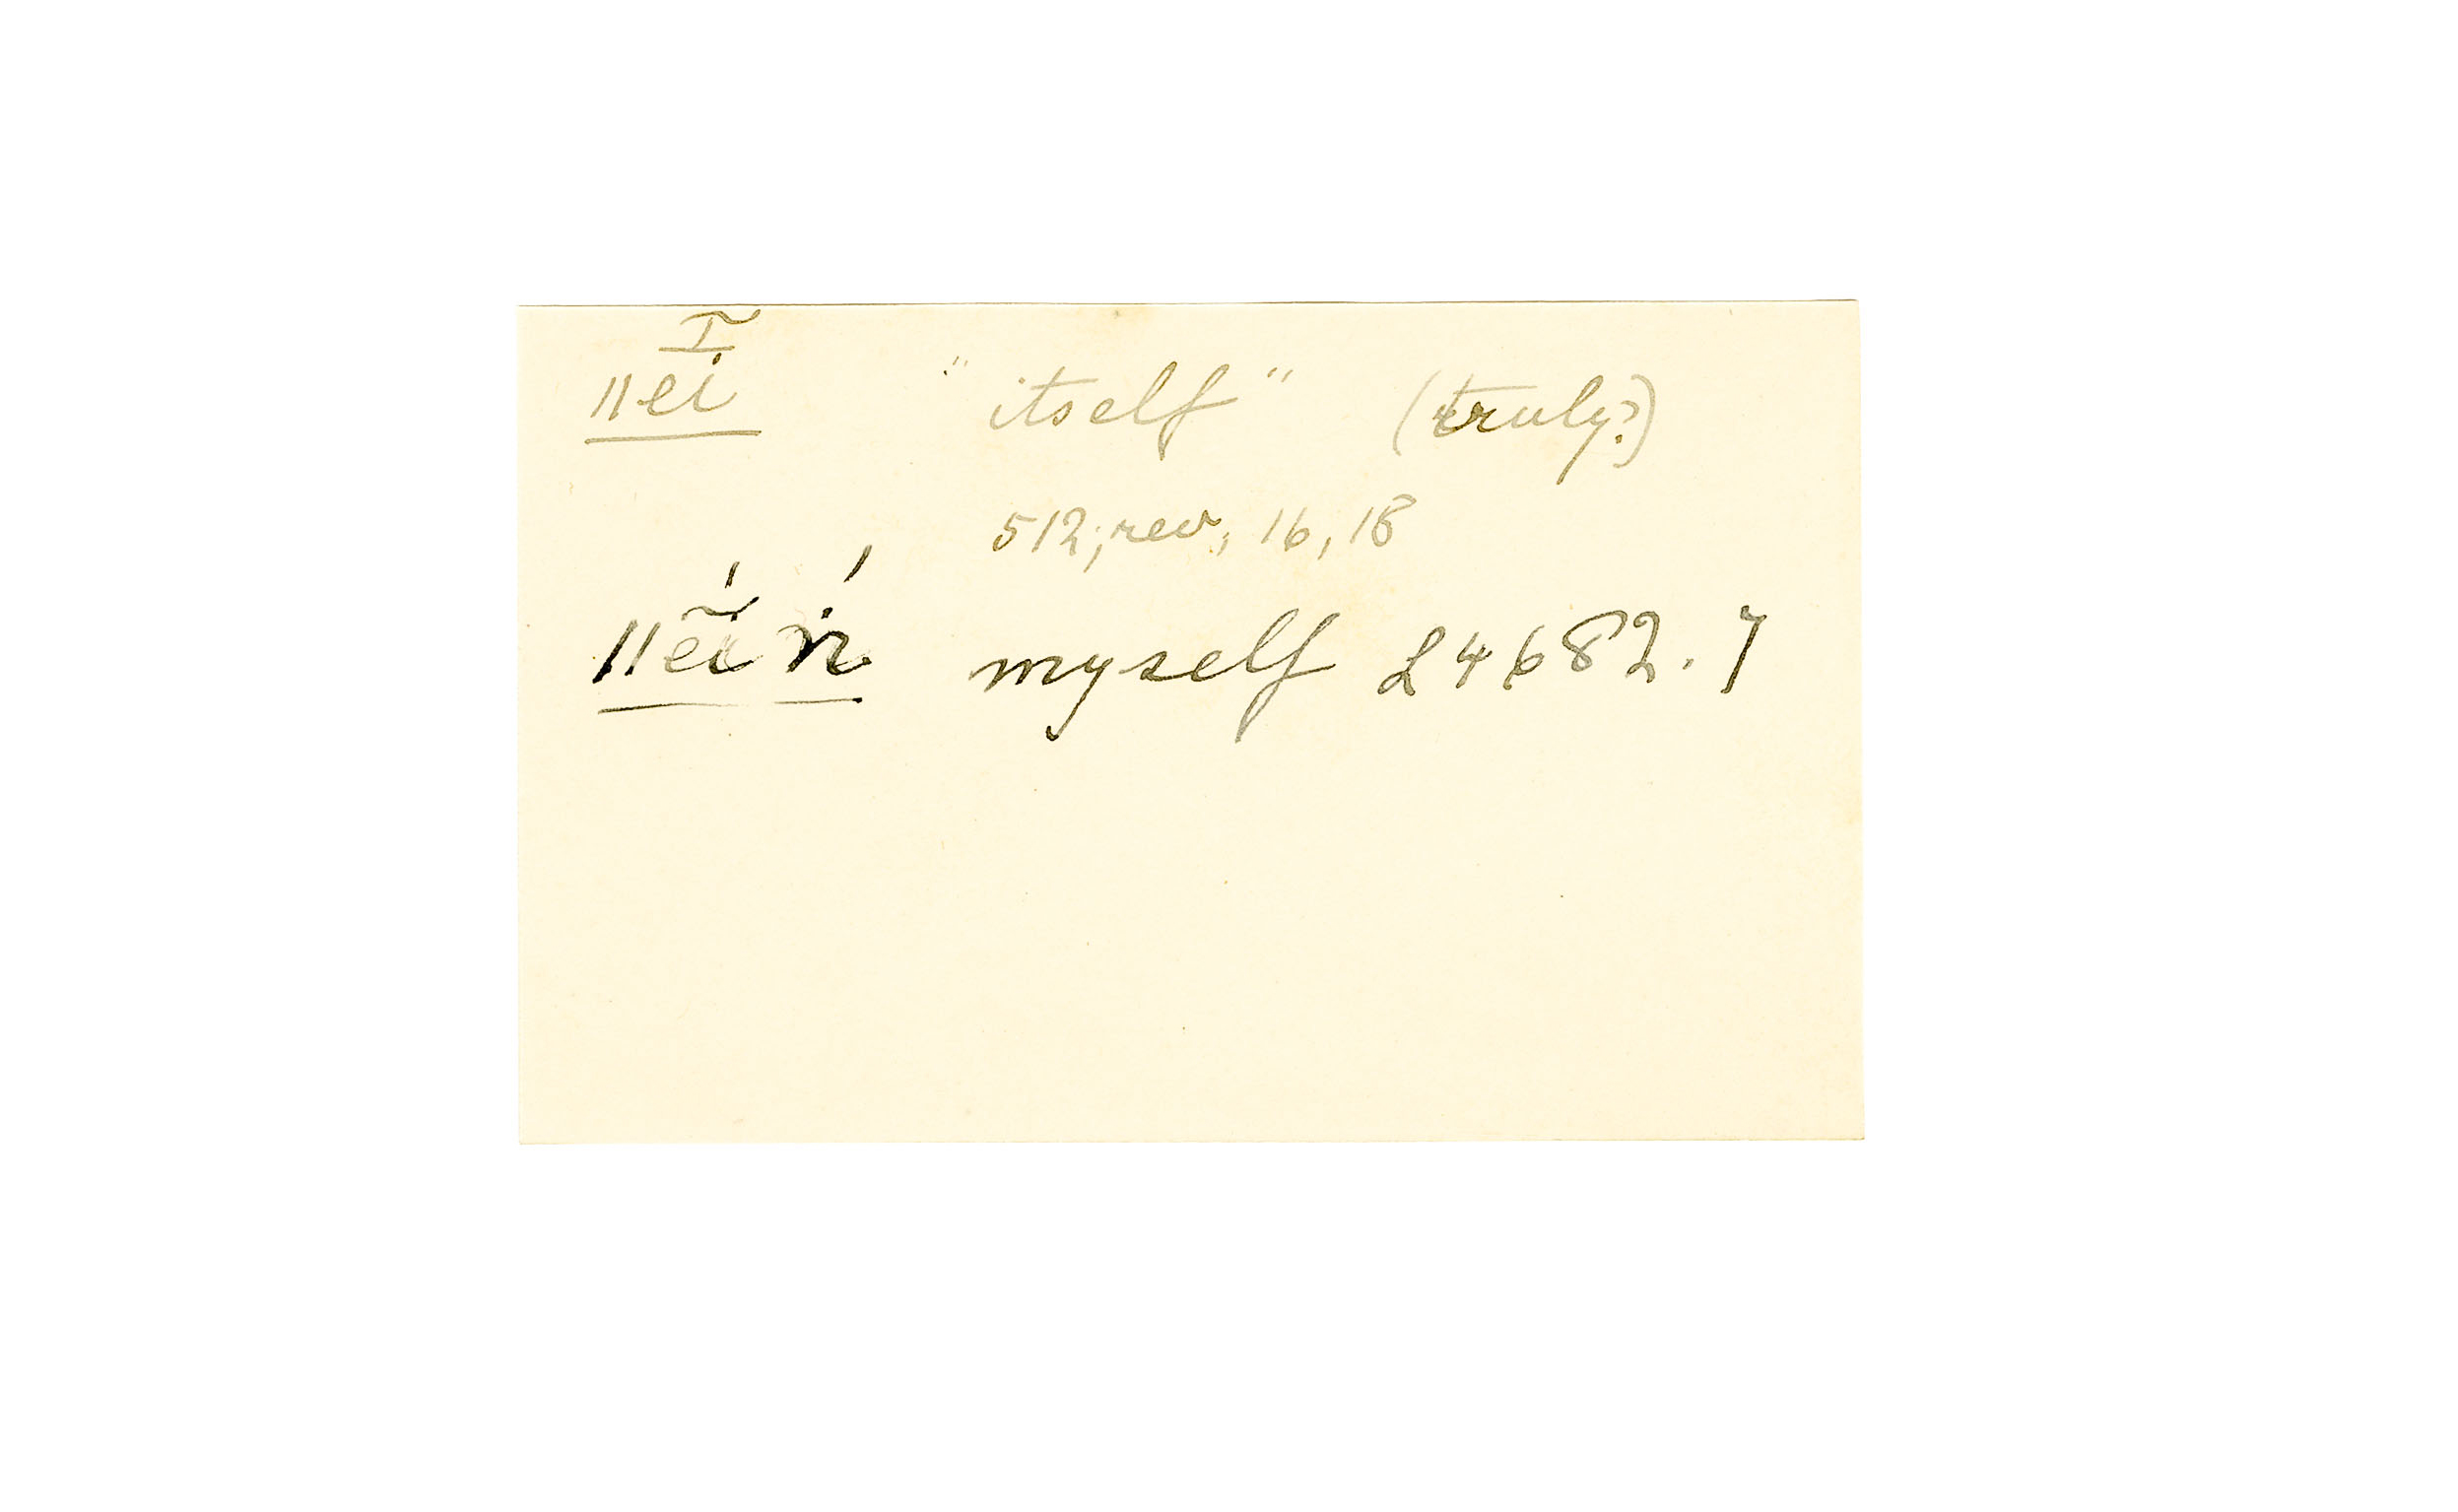 I
ǁei "itself" (truly?)
512; rev, 16, 18
ǁẽ́iń myself L4682.7